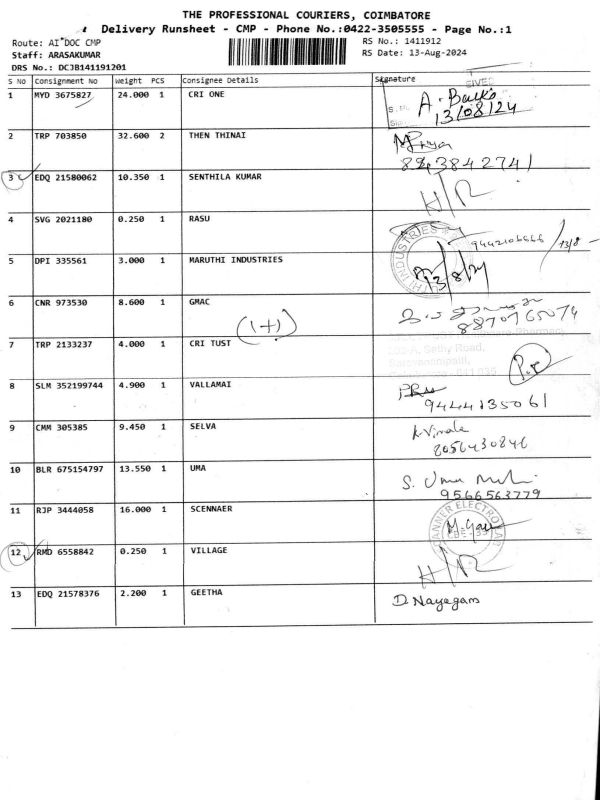 THE PROFESSIONAL COURIERS, COIMBATORE
Delivery Runsheet - CMP - Phone No.:0422-3505555 - Page No.:1
Route: AI DOC CMP
RS No.: 1411912
Staff: ARASAKUMAR
RS Date: 13-Aug-2024
DRS No.: DCJB141191201
S No Consignment No Weight PCS Consignee Details Signature
1 MYD 3675827 24.000 1 CRI ONE
13/08/24
2 TRP 703850 32.600 2 THEN THINAI
3 EDQ 21580062 10.350 1 SENTHILA KUMAR H/R
4 SVG 2021180 0.250 1 RASU
13/8
5 DPI 335561 3.000 1 MARUTHI INDUSTRIES
13/8/24
6 CNR 973530 8.600 1 GMAC
8870765074
(1+)
7 TRP 2133237 4.000 1 CRI TUST
202-A, Sathy Road,
8 SLM 352199744 4.900 1 VALLAMAI
9444135061
9 CMM 305385 9.450 1 SELVA
K Vimala
10 BLR 675154797 13.550 1 UMA
S. Uma
9566563779
11 RJP 3444058 16.000 1 SCENNAER
12 RMD 6558842 0.250 1 VILLAGE H/R
13 EDQ 21578376 2.200 1 GEETHA D. Nayagam